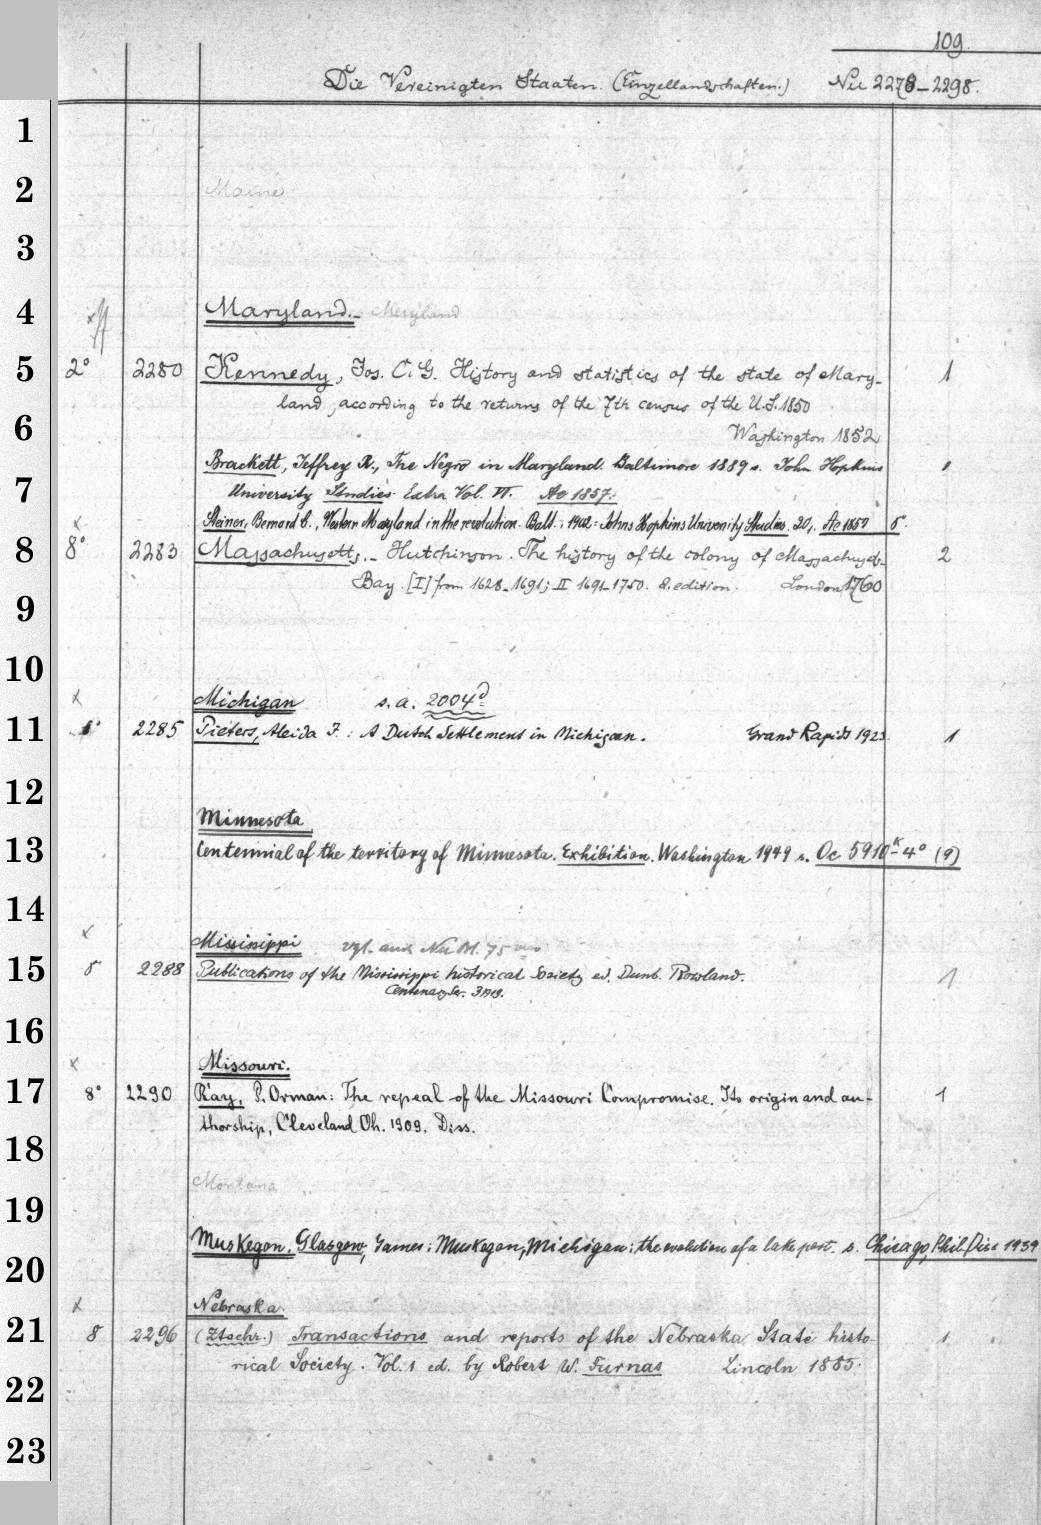 109.
Die Vereinigten Staaten. (Einzellandschaften.) Nu 2278-2298.
1
2 Maine
3
4 Maryland.- Maryland
5 2° 2280 Kennedy, Jos. C. G. History and statistics of the state of Mary- 1
land, according to the returns of the 7th census of the U.S. 1850
6 Washington 1852
Brackett, Jeffrey R., The Negro in Maryland. Baltimore 1889 s. John Hopkins
7 University Studies. Extra Vol. VI. Ac 1857.
x Steiner, Bernard C., Western Maryland in the revolution. Balt., 1902 = Johns Hopkins University Studies. 20,. Ac 1857 8.
8 8° 2283 Massachusetts.- Hutchinson. The history of the colony of Massachusets- 2
Bay. [I] from 1628-1691; II 1691-1750. 2. edition. London 1760
9
10
x Michigan s. a. 2004d
11 8° 2285 Pieters, Aleida J.: A Dutch Settlement in Michigan. Grand Rapids 1923. 1
12
Minnesota
13 Centennial of the territory of Minnesota. Exhibition. Washington 1949 s. Oc 5910k-4° (9)
14
x Missisippi vgl. auch Nu M. 75
15 8 2288 Publications of the Mississippi historical Society ed. Dunb. Rowland. 1
Centenary Ser. 3 1919.
16
x Missouri.
17 8° 2290 Ray, P. Orman: The repeal of the Missouri Compromise. Its origin and au- 1
thorship, Cleveland Oh. 1909. Diss.
18
Montana
19
Muskegon. Glasgow, James: Muskegon, Michigan; the evolution of a lake port. s. Chicago, Phil. Diss 1939
20
x Nebraska.
21 8 2296 (Ztschr.) Transactions and reports of the Nebraska State histo- 1
rical Society. Vol. 1 ed. by Robert W. Furnas Lincoln 1885.
22
23